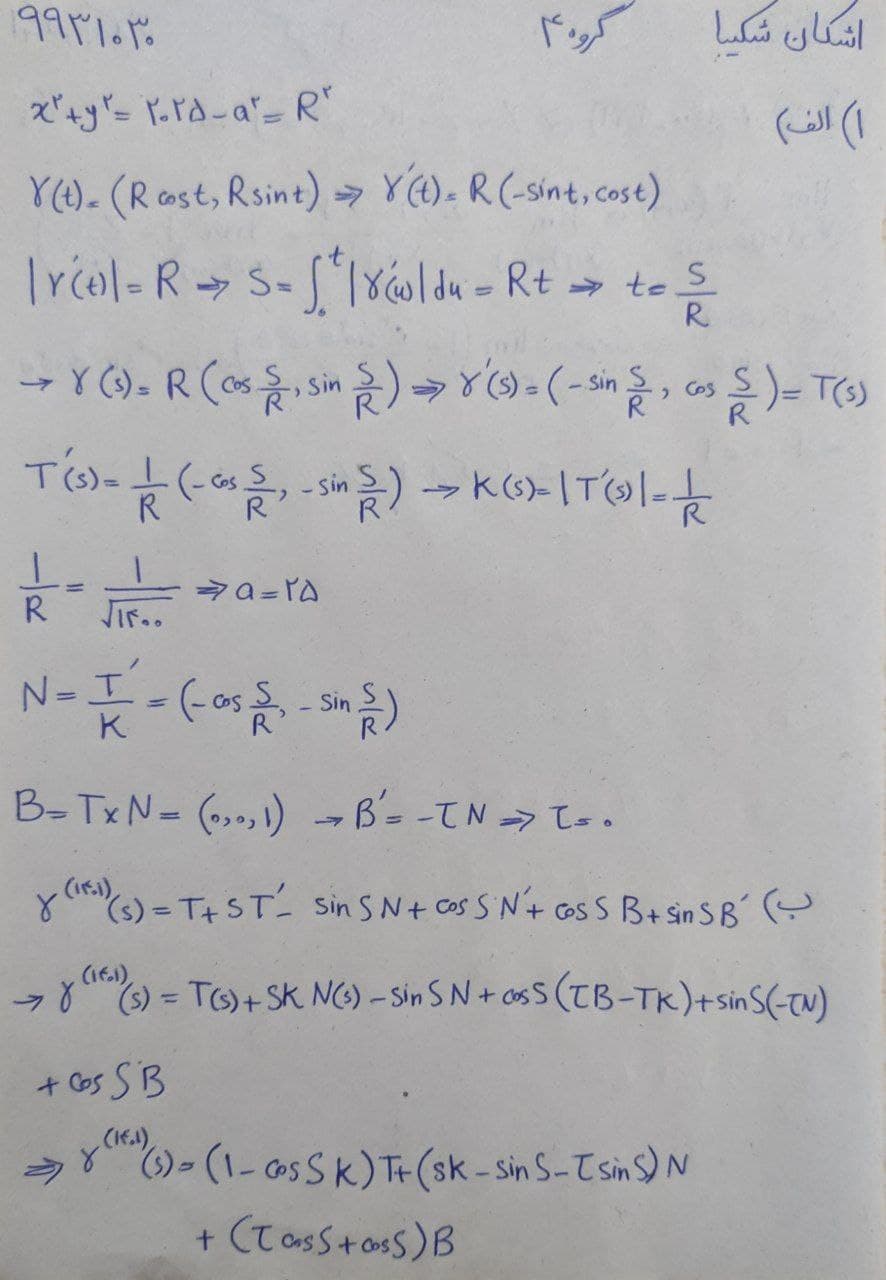 اشکان شکیبا گروه ۴ ۹۹۳۱۰۳۰
۱) الف) x²+y²= ۲۰۲۵-a²= R²
γ(t)= (R cost, Rsint) ⇒ γ'(t)= R(-sint, cost)
|γ'(t)|= R → S= ∫₀ᵗ |γ'(u)| du = Rt ⇒ t= S/R
→ γ(s)= R(cos S/R, sin S/R) ⇒ γ'(s)= (-sin S/R, cos S/R)= T(s)
T'(s)= 1/R (-cos S/R, -sin S/R) → K(s)= |T'(s)|= 1/R
1/R = 1/√۱۴۰۰ ⇒ a=۲۵
N= T'/K = (-cos S/R, -sin S/R)
B= T×N= (۰,۰,۱) → B'= -τN ⇒ τ= ۰
ب) γ^(۱۴۰۱)(s)= T+ST'- sin S N+ cos S N'+ cos S B+ sin S B'
→ γ^(۱۴۰۱)(s)= T(s)+ SK N(s) - sin S N + cos S (τB-TK)+ sin S(-τN)
+ cos S B
⇒ γ^(۱۴۰۱)(s)= (1- cos S K)T+(SK- sin S-τ sin S) N
+ (τ cos S+ cos S)B